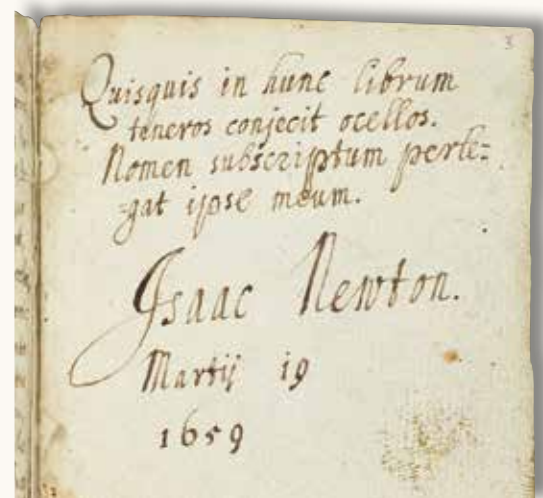 3
Quisquis in hunc librum
teneros conjecit ocellos.
Nomen subscriptum perle=
=gat ipse meum.
Isaac Newton.
Martij 19
1659